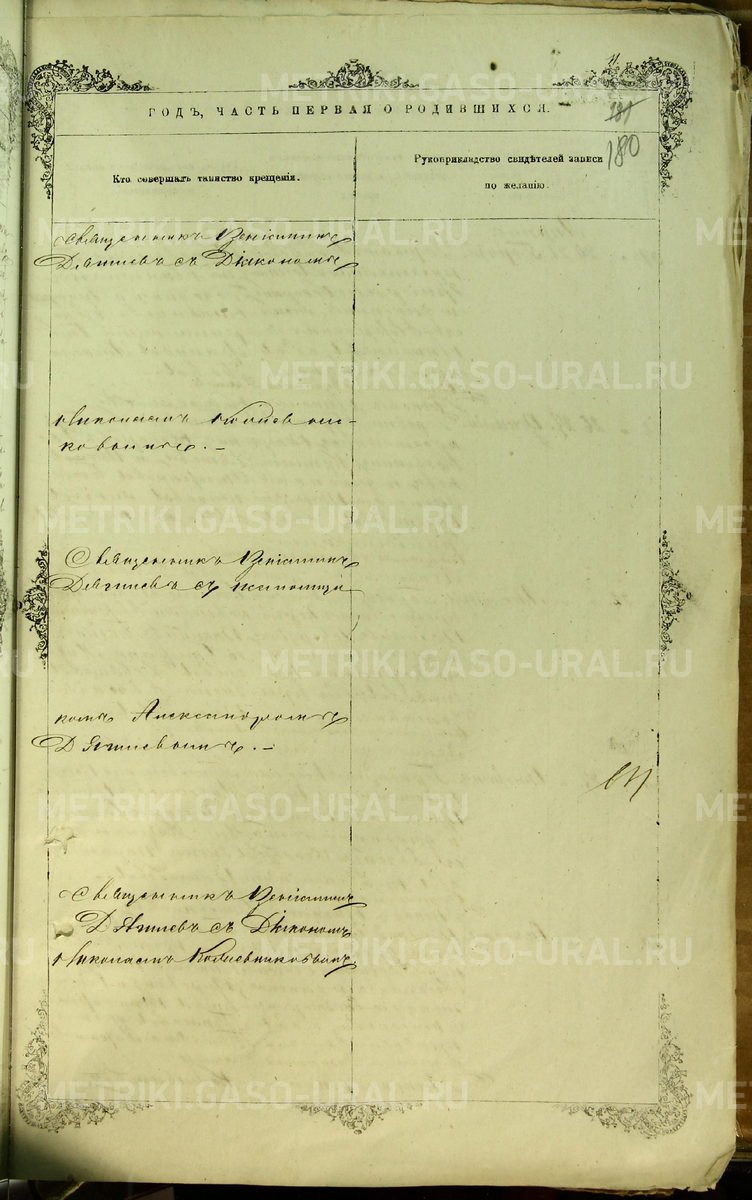 ГОДЪ, ЧАСТЬ ПЕРВАЯ О РОДИВШИХСЯ.
181
180
Кто совершалъ таинство крещенія.
Рукоприкладство свидѣтелей записи
по желанію.
Священникъ Веніаминъ
Дягилевъ съ Діакономъ
Николаемъ Кожевни-
ковымъ. –
Священникъ Веніаминъ
Дягилевъ съ псаломщи
комъ Александромъ
Дягилевымъ. –
Священникъ Веніаминъ
Дягилевъ съ Діакономъ
Николаемъ Кожевниковымъ
METRIKI.GASO-URAL.RU